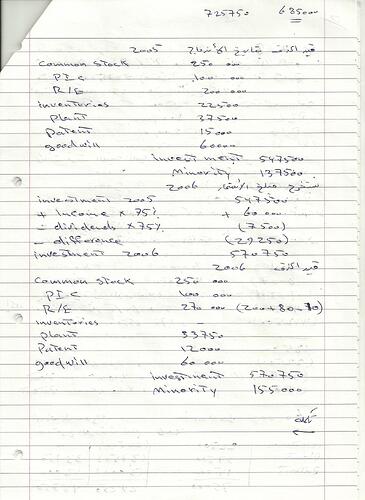 725750 685000
قيد الحذف بتاريخ الاقتناء 2005
Common Stock 250 000
PIC 100 000
R/E 200 000
inventories 22500
Plant 37500
Patent 15000
goodwill 60000
investment 547500
Minority 137500
2006
investment 2005 547500
+ Income × 75% + 60 000
- dividends × 75% (7500)
- difference (29250)
investment 2006 570750
قيد الحذف 2006
Common Stock 250 000
PIC 100 000
R/E 270 000 (200+80-10)
inventories –
plant 33750
Patent 12000
goodwill 60 000
investment 570750
Minority 155000